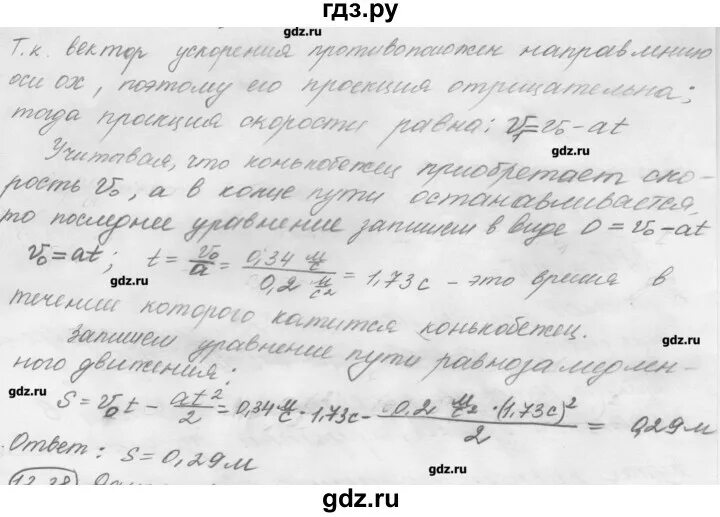 гдз.ру
Т.к. вектор ускорения противоположен направлению
gdz.ru
оси ох, поэтому его проекция отрицательна;
тогда проекция скорости равна: v₁=v₀-at
gdz.ru
Учитывая, что конькобежец приобретает ско-
рость v₀, а в конце пути останавливается,
то последнее уравнение запишем в виде 0=v₀-at
v₀=at; t = v₀/a = 0,34 м/с / 0,2 м/с² = 1,73 с - это время в
gdz.ru
течении которого катится конькобежец.
Запишем уравнение пути равнозамедлен-
ного движения:
gdz.ru
S = v₀t - at²/2 = 0,34 м/с · 1,73с - 0,2 м/с² · (1,73с)²/2 = 0,29м
Ответ: S=0,29м
gdz.ru
12.28
gdz.ru